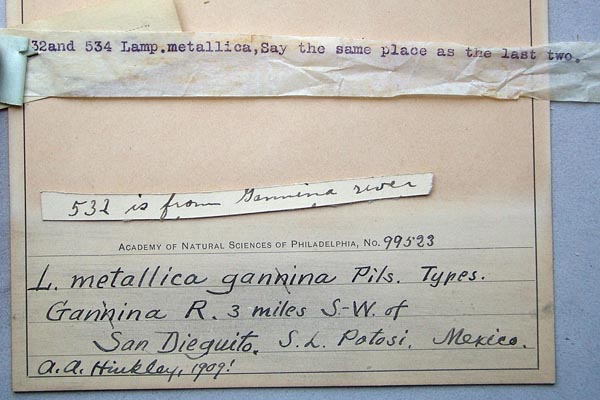 32and 534 Lamp.metallica,Say the same place as the last two.
532 is from Gannina river
ACADEMY OF NATURAL SCIENCES OF PHILADELPHIA, NO. 99523
L. metallica gannina Pils. Types.
Gannina R. 3 miles S.-W. of
San Dieguito. S. L. Potosi, Mexico.
A. A. Hinkley, 1909!